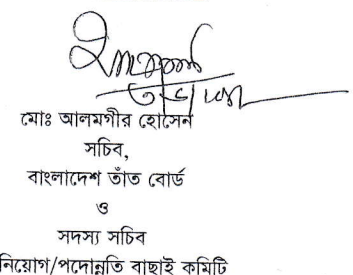 মোঃ আলমগীর হোসেন
সচিব,
বাংলাদেশ তাঁত বোর্ড
ও
সদস্য সচিব
নিয়োগ/পদোন্নতি বাছাই কমিটি